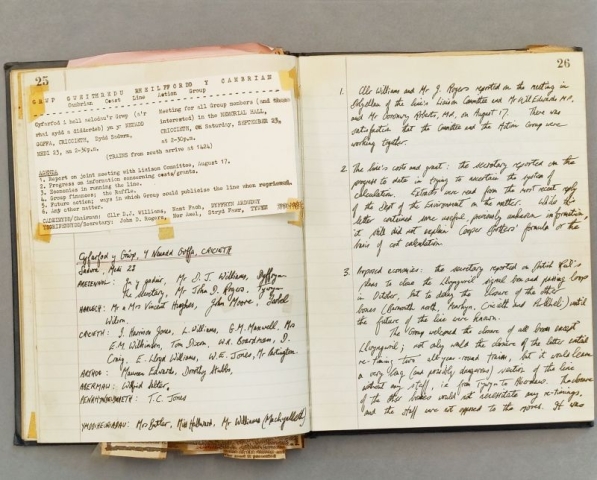 25
GRWP GWEITHREDU RHEILFFORDD Y CAMBRIAN
Cambrian Coast Line Action Group
Cyfarfod i holl aelodau'r Grwp (a'r
rhai sydd a diddordeb) yn yr NEUADD
GOFFA, CRICCIETH, Dydd Sadwrn,
MEDI 23, am 2-30p.m.
Meeting for all Group members (and those
interested) in the MEMORIAL HALL,
CRICCIETH, on Saturday, SEPTEMBER 23,
at 2-30p.m.
(TRAINS from south arrive at 1424)
AGENDA
1. Report on joint meeting with Liaison Committee, August 17.
2. Progress on information concerning costs/grants.
3. Economies in running the line.
4. Group Finances: the Raffle.
5. Future action; ways in which Group could publicise the line when reprieved.
6. Any other matter.
CADEIRYDD/Chairman: Cllr D.J. Williams, Bont Fach, DYFFRYN ARDUDWY
YSGRIFENNYDD/Secretary: John D. Rogers, Mor Awel, Stryd Fawr, TYWYN
Cyfarfod y Grŵp, Y Neuadd Goffa, CRICIETH
Sadwrn, Medi 23
PRESENNOL: Yn y gadair, Mr D.J. Williams, Dyffryn
The Secretary, Mr John D. Rogers, Tywyn
HARLECH: Mr a Mrs Vincent Hughes, John Moore, Isobel
Wilson.
CRICIETH: J. Harrison Jones, L. Williams, G.M. Maxwell, Mrs
E.M. Wilkinson, Tom Dixon, W.A. Boardman, D.
Craig, E. Lloyd Williams, W.E. Jones, Mr Partington.
ARTHOG: Maureen Edwards, Dorothy Stubbs,
ABERMAW: Wilfred Salter,
T.C. Jones
Mrs Butler, Miss Holland, Mr Williams (Machynlleth)
26
1. Cllr Williams and Mr J. Rogers reported on the meeting in
Dolgellau of the line's Liaison Committee and Mr Wil Edwards M.P.
and Mr Goronwy Roberts, M.P., on August 17. There was
satisfaction that the Committee and the Action Group were
working together.
2. The line's costs and grant: the secretary reported on the
progress to date in trying to ascertain the system of
calculation. Extracts were read from the most recent reply
of the Dept of the Environment on the matter. While the
letter contained some useful, previously unknown information,
it still did not explain Cooper Brothers' formula or the
basis of cost calculation.
3. Proposed economies: the secretary reported on British Rail's
plans to close the Llwyngwril signal box and passing loop
in October, but to delay the closure of the other
boxes (Barmouth north, Penrhyn, Criccieth and Pwllheli) until
the future of the line was known.
The Group welcomed the closure of all boxes except
Llwyngwril; not only would the closure of the latter entail
re-timing two all-year-round trains, but it would leave
a very long (and possibly dangerous) section of the line
without any staff, i.e. from Tywyn to Aberdovey. The closure
of the other boxes would not necessitate any re-timings,
and the staff were not opposed to the moves. It was